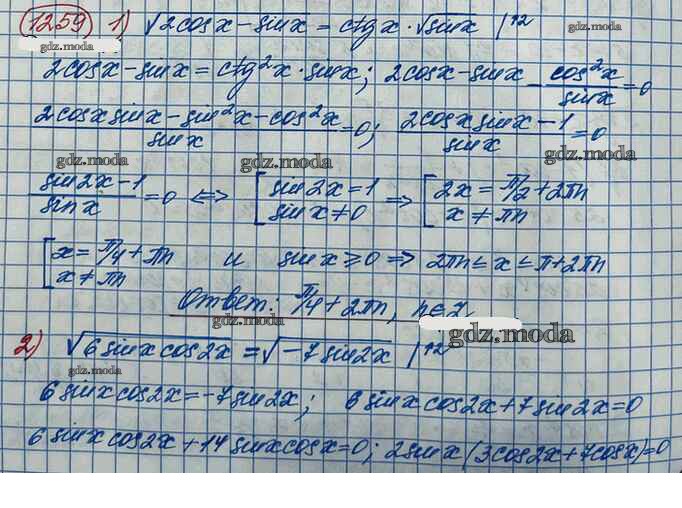 1259 1) √2cosx-sinx = ctgx · √sinx |^2
gdz.moda
2cosx-sinx = ctg²x · sinx; 2cosx-sinx - cos²x/sinx = 0
gdz.moda
(2cosx sinx - sin²x - cos²x)/sinx = 0; (2cosx sinx - 1)/sinx = 0
gdz.moda gdz.moda gdz.moda
(sin2x-1)/sinx = 0 ⇔ [sin2x = 1 ⇒ [2x = π/2 + 2πn
sinx ≠ 0 x ≠ πn
[x = π/4 + πn и sinx ≥ 0 ⇒ 2πn ≤ x ≤ π + 2πn
x ≠ πn
Ответ: π/4 + 2πn, n ∈ Z
gdz.moda gdz.moda
2) √6sinxcos2x = √-7sin2x |^2
gdz.moda
6sinxcos2x = -7sin2x; 6sinxcos2x + 7sin2x = 0
6sinxcos2x + 14sinxcosx = 0; 2sinx(3cos2x + 7cosx) = 0